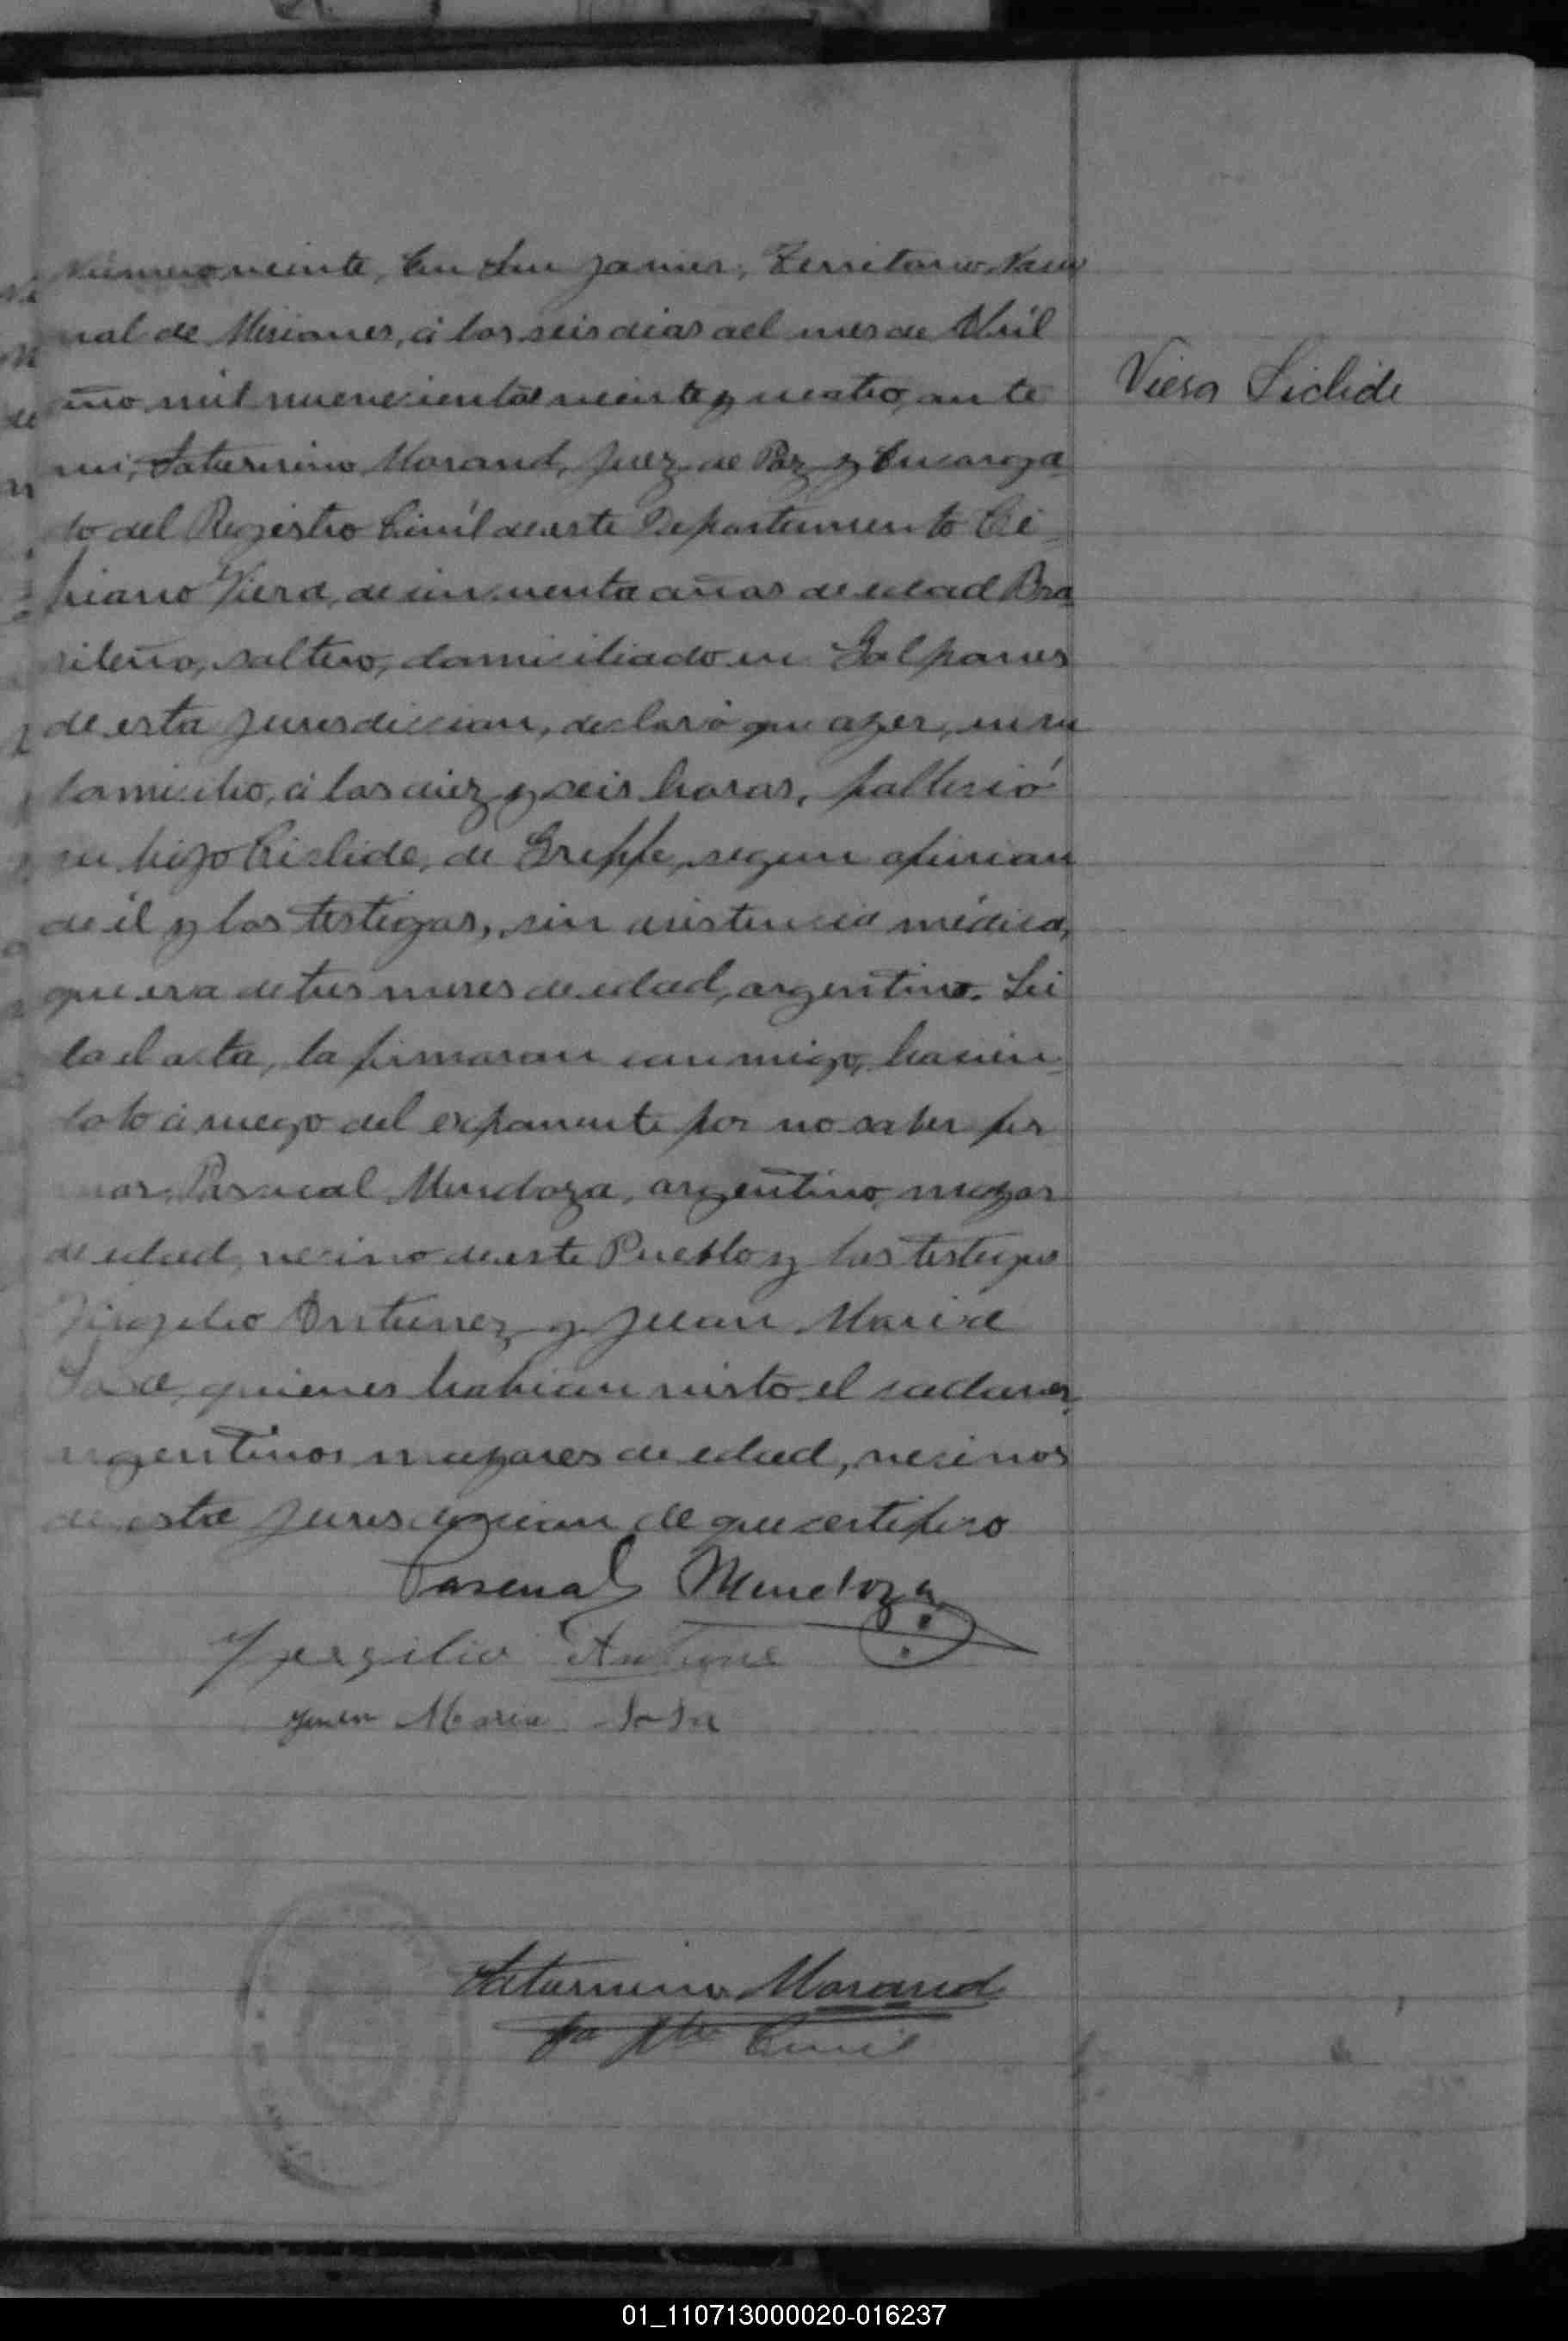 Número veinte, En San Javier, Territorio Nacio
nal de Misiones, á los seis dias del mes de Abríl
año mil nuevecientos veinte y cuatro, ante
mi, Saturnino Morand, Juez de Paz y Encarga
do del Registro Civíl de este Departamento Ci
priano Viera, de cincuenta años de edad Bra
sileño, soltero, domiciliado en Galpones
de esta Jurisdiccion, declaró que ayer, en su
domicilio, á las diez y seis horas, fallició
su hijo Lislide, de Grippe, segun opinion
de él y los testigos, sin asistencia médica,
que era de tres meses de edad, argentino. Lei
da el acta, la firmaron conmigo, hacien
dolo á ruego del exponente por no saber fir
mar, Pascual Mendoza, argentino, mayor
de edad, vecino de este Pueblo y los testigos
Virgilio Antunez y Juan Maria
Sosa, quienes habian visto el cadaver,
argentinos mayores de edad, vecinos
de esta Jurisdiccion de que certifico
Pascual Mendoza
Virgilio Antune
Juan Maria Sosa
Saturnino Morand
Civil
Viera Liclide
01_110713000020-016237